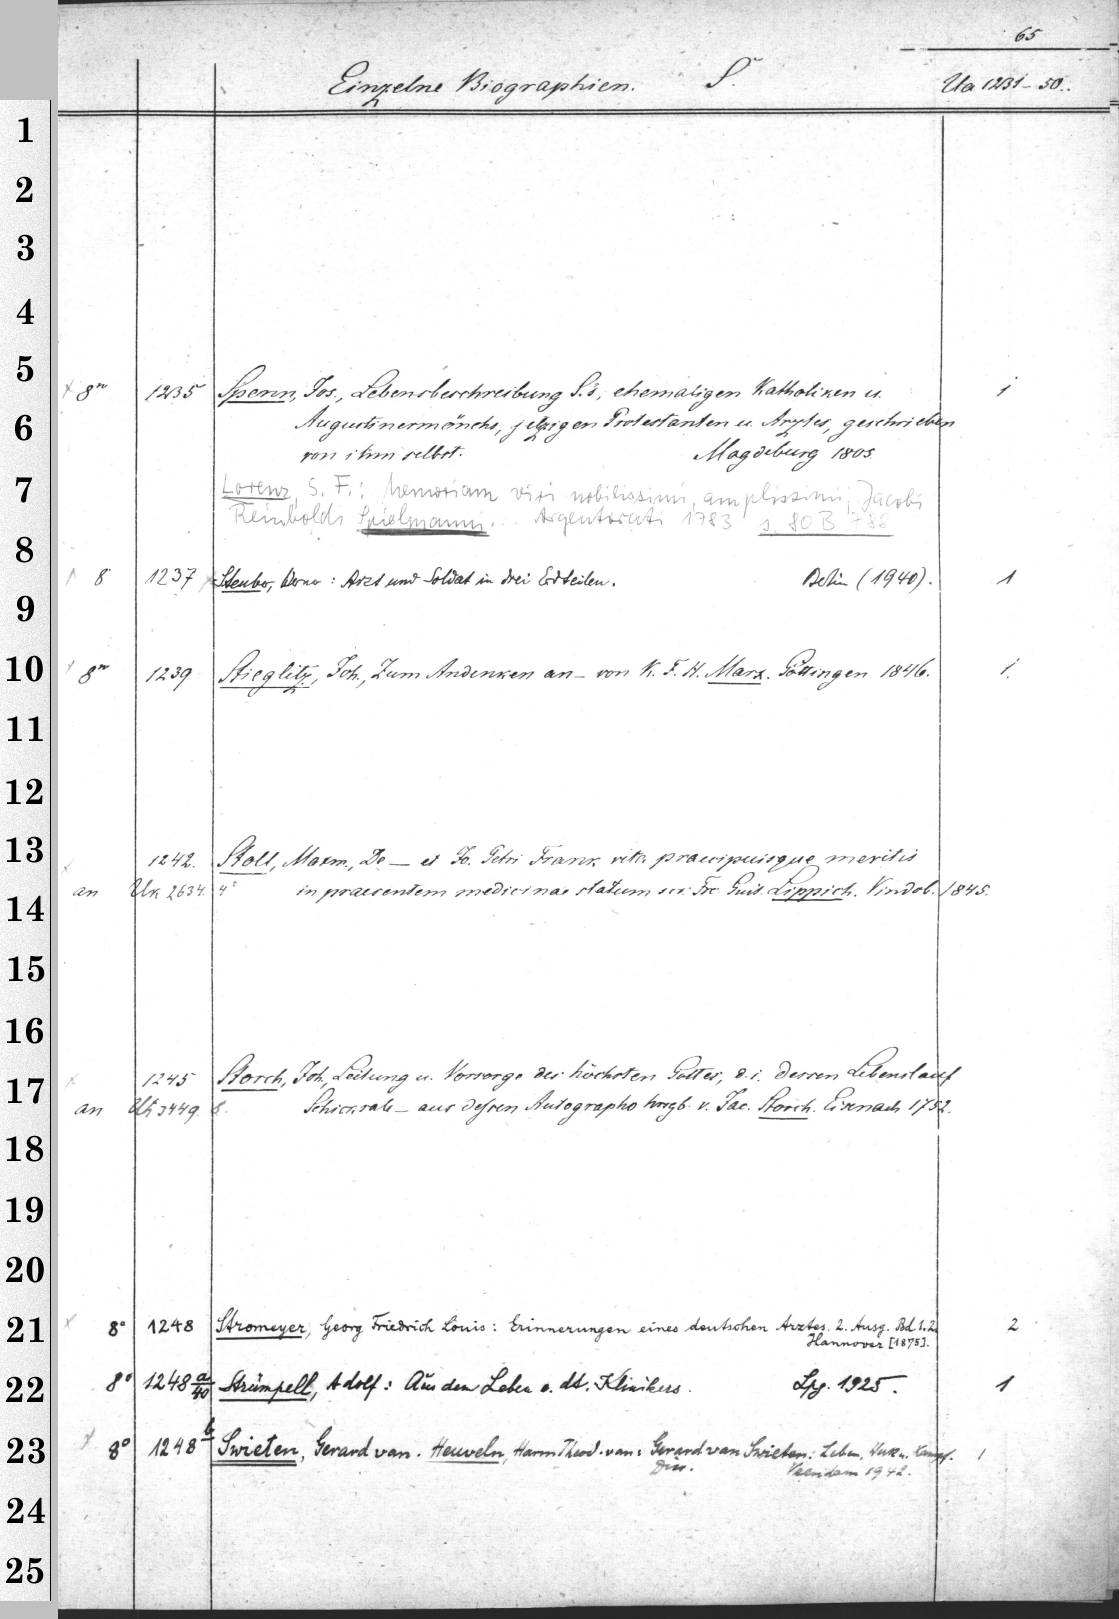 65
Einzelne Biographien. S. Ua 1231-50.
1
2
3
4
5
8° 1235 Spenn, Jos., Lebensbeschreibung S.'s, ehemaligen Katholiken u. 1
6
Augustinermönchs, jetzigen Protestanten u. Arztes, geschrieben
von ihm selbst. Magdeburg 1805.
7
Lorenz, S. F.: Memoriam viri nobilissimi, amplissimi, Jacobi
Reinboldi Spielmann... Argentorati 1783 s. 80 B 788
8
8 1237 Steuber, Werner: Arzt und Soldat in drei Erdteilen. Berlin (1940). 1
9
10
8° 1239 Stieglitz, Joh., Zum Andenken an – von K. F. H. Marx. Göttingen 1846. 1
11
12
13
1242. Stoll, Maxm., De — et Jo. Petri Frank vita praecipuisque meritis
an Uk 2634. 4° in praesentem medicinae statum scr. Frc. Guil. Lippich. Vindob. 1845.
14
15
16
17
1245 Storch, Joh., Leitung u. Vorsorge des höchsten Gottes, d. i. dessen Lebenslauf
an 3449. 8. Schicksale – aus dessen Autographo hrsgb. v. Jac. Storch. Eisenach 1752.
18
19
20
21
8° 1248 Stromeyer, Georg Friedrich Louis: Erinnerungen eines deutschen Arztes. 2. Ausg. Bd 1.2. 2
Hannover [1875].
22
8° 1248 a/40 Strümpell, Adolf: Aus dem Leben e. dt. Klinikers. Lpz. 1925. 1
23
8° 1248 b Swieten, Gerard van. Heuveln, Harm Theod. van: Gerard van Swieten: Leben, Werk u. Kampf. 1
Diss. Veendam 1942.
24
25